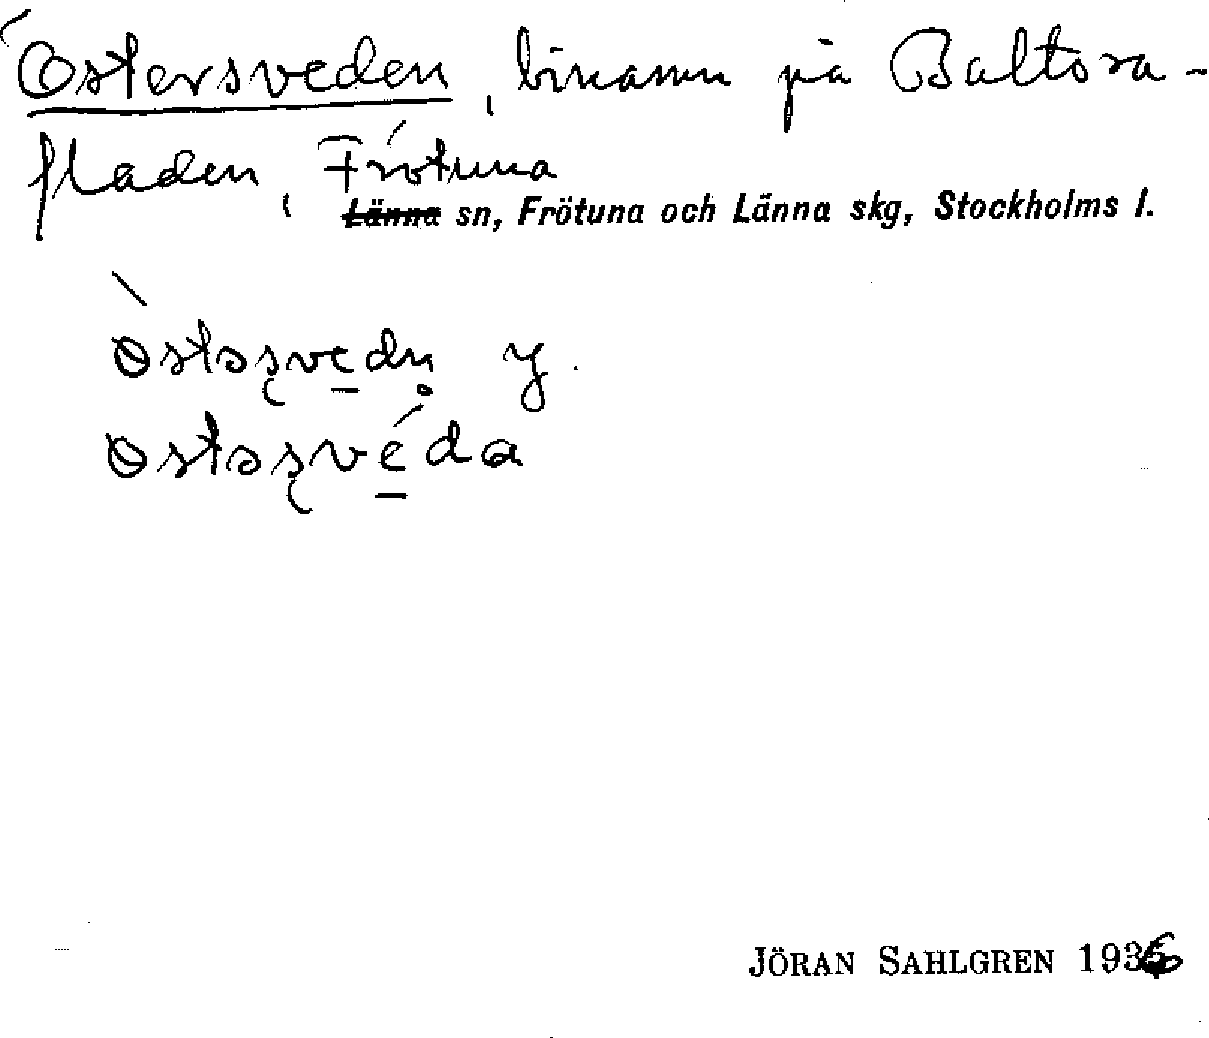 Östersveden, binamn på Baltora-
fladen, Frötuna
Länna sn, Frötuna och Länna skg, Stockholms l.
òstəʂvedn̥ y.
ɷstəʂvéda
JÖRAN SAHLGREN 1936